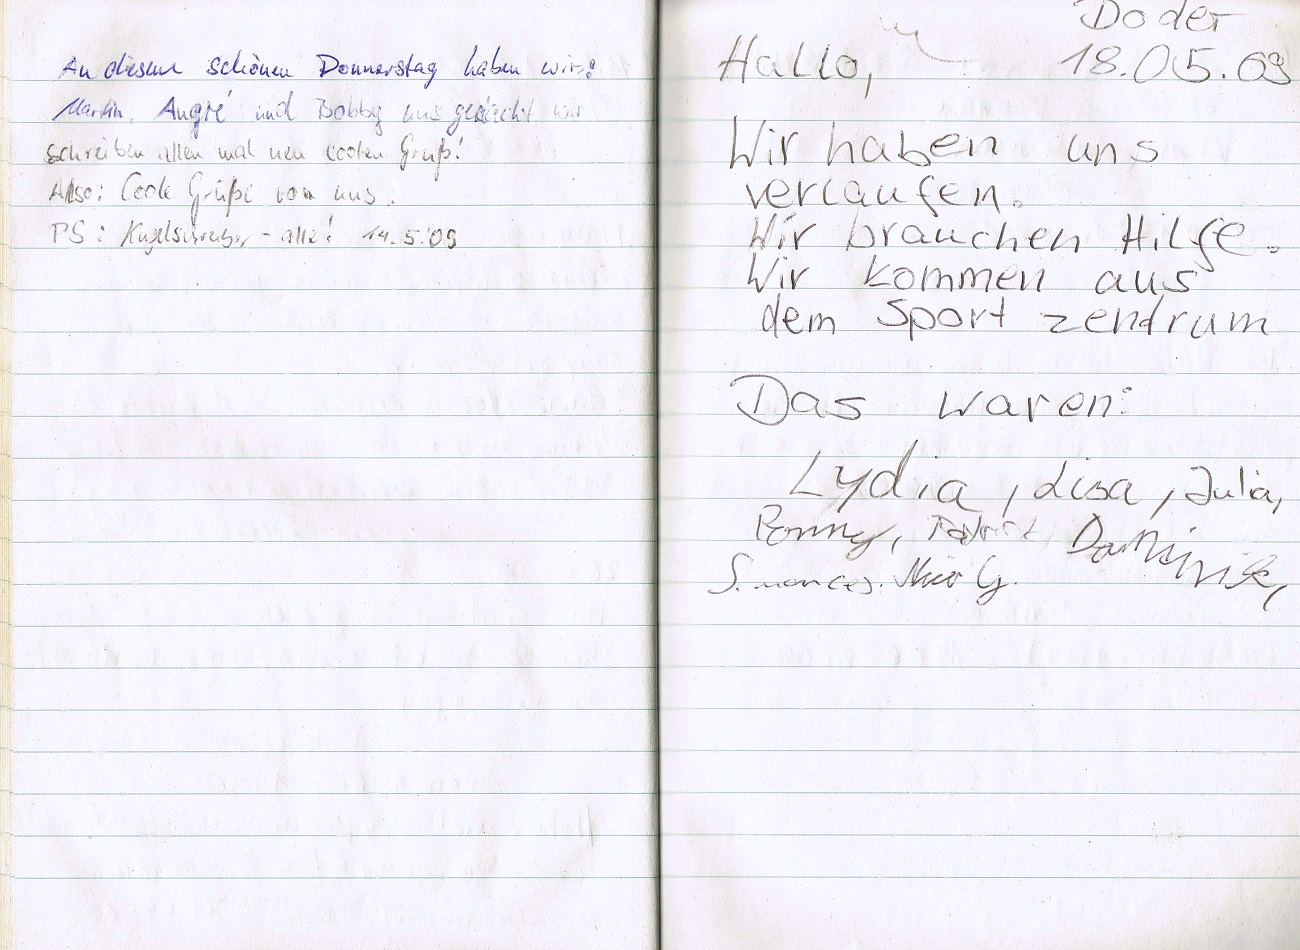 An diesem schönen Donnerstag haben wir:
Martin, und Bobby uns gedacht wir
schreiben allen mal nen coolen Gruß!
Also: Coole Grüße von uns.
PS: Kugelschreiber - alle! 14.5.'09
Do der
Hallo, 18.05.09
Wir haben uns
verlaufen.
Wir brauchen Hilfe.
Wir kommen aus
dem Sport zentrum
Das waren:
Lydia, Lisa, Julia,
Dominik,
Nico G.